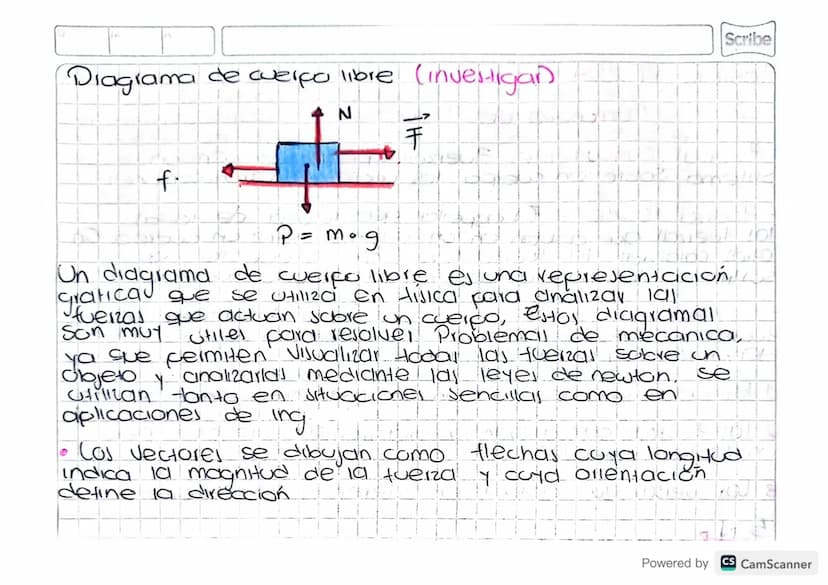 Scribe
Diagrama de cuerpo libre (investigar)
N
F
f.
P = m • g
Un diagrama de cuerpo libre es una representación
grafica que se utiliza en física para analizar las
fuerzas que actuan sobre un cuerpo, Estos diagramas
son muy utiles para resolver Problemas de mecanica,
ya que permiten visualizar todas las fuerzas sobre un
objeto y analizarlas mediante las leyes de newton. se
utilizan tanto en situaciones sencillas como en
aplicaciones de ing
• Los vectores se dibujan como flechas cuya longitud
indica la magnitud de la fuerza y cuya orientación
define la dirección
Powered by CS CamScanner